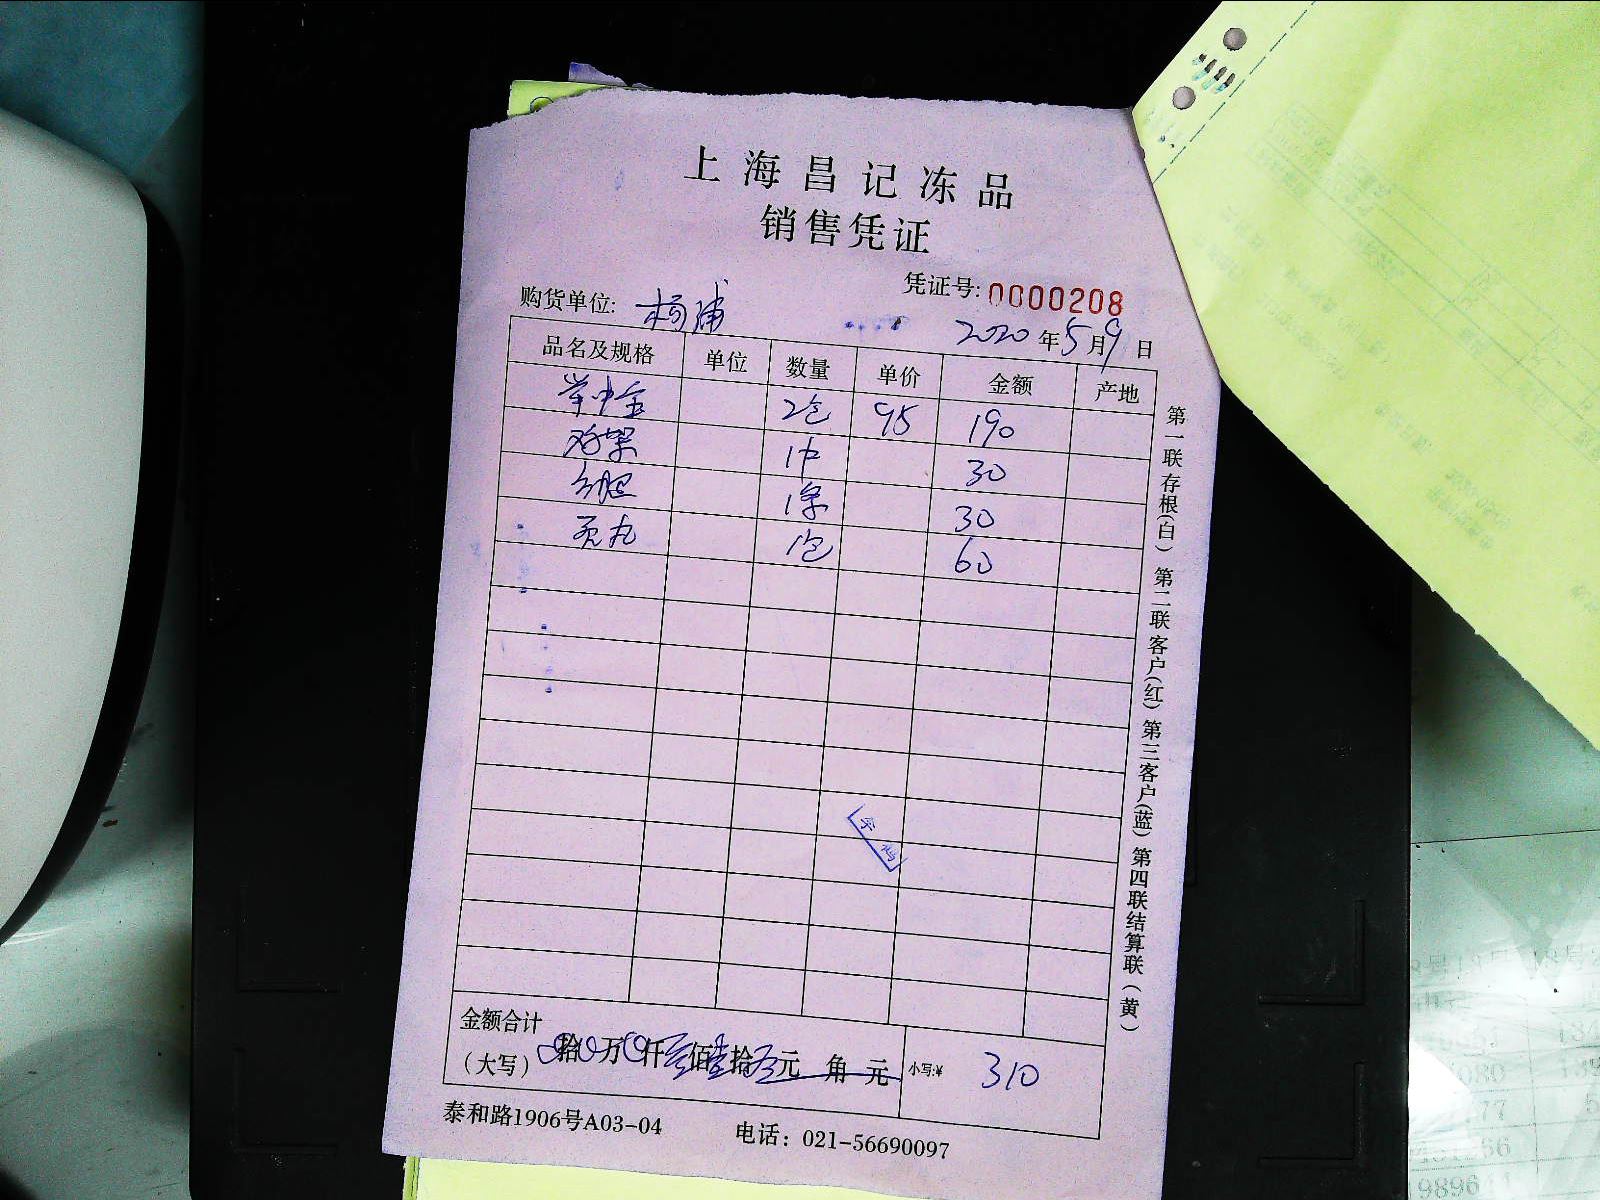 上海昌记冻品
销售凭证
凭证号: 0000208
购货单位: 柯浦
2020年5月9日
品名及规格 单位 数量 单价 金额 产地
2包 95 190
鸡架 1巾 30
1条 30
贡丸 1包 60
第一联存根(白) 第二联客户(红) 第三客户(蓝) 第四联结算联(黄)
金额合计
(大写) 拾 万 仟 叁佰壹拾 元 角 元 小写:¥ 310
泰和路1906号A03-04 电话: 021-56690097